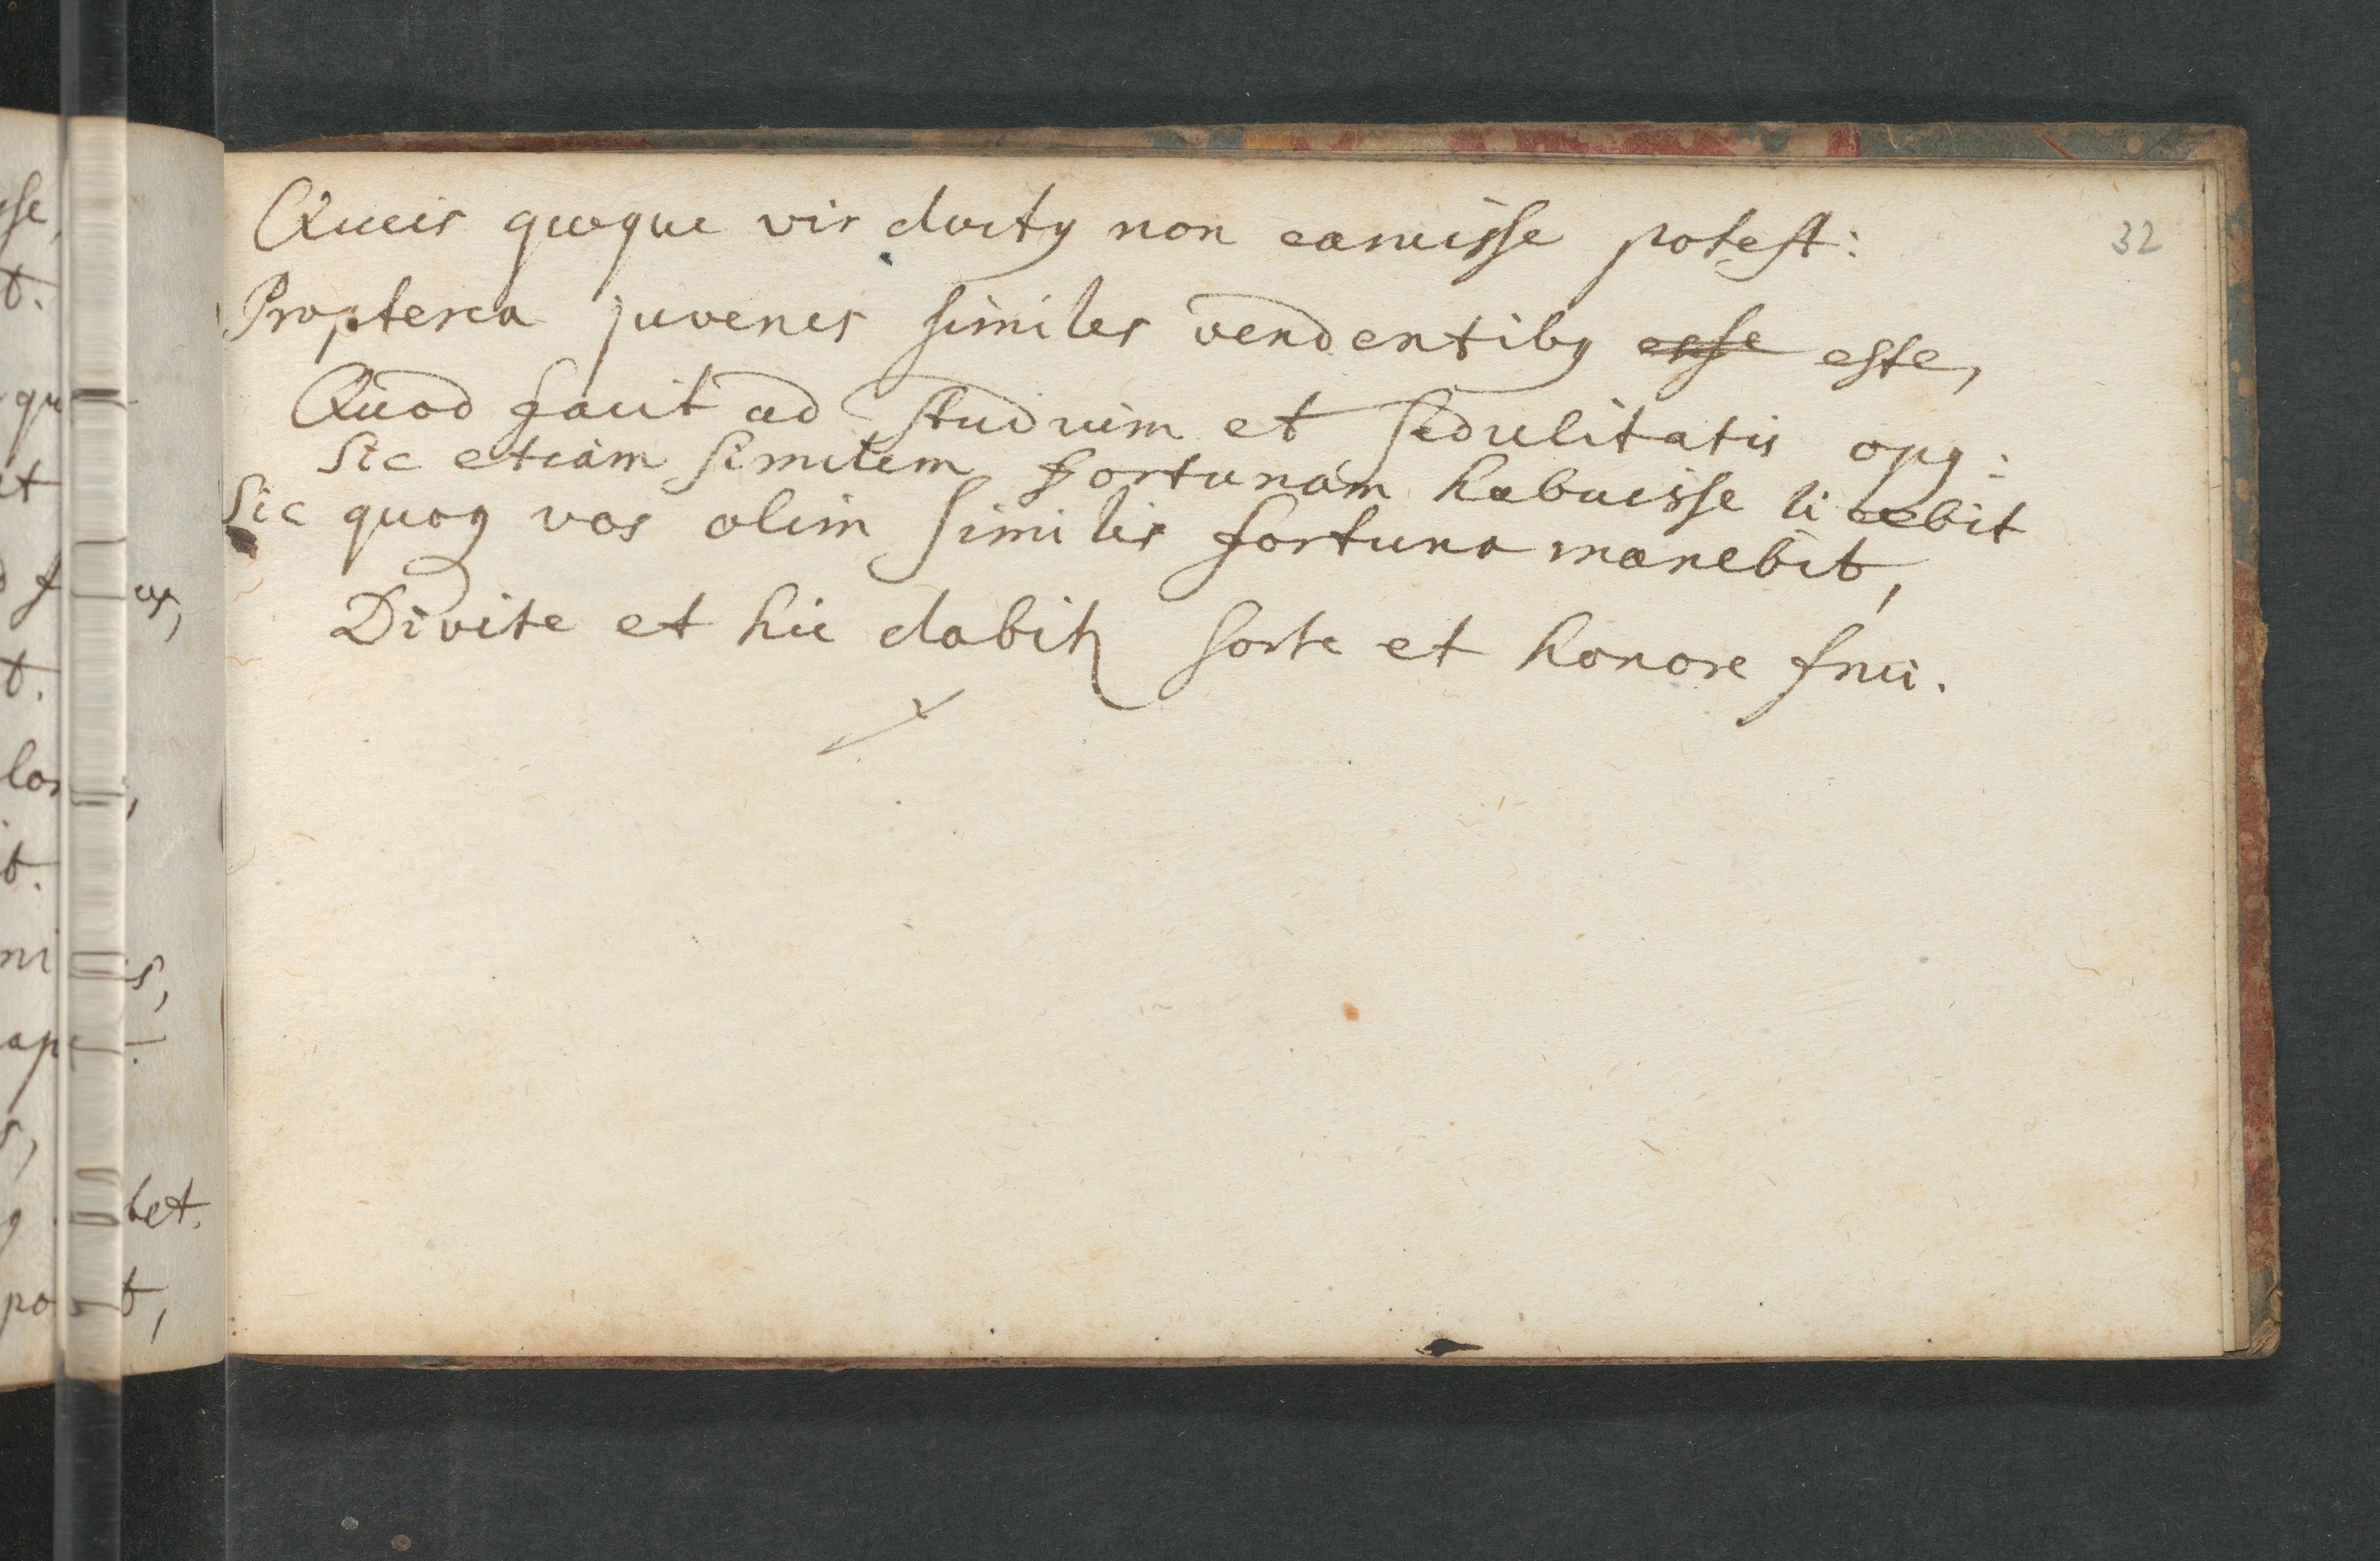 32
Queis quoque vir doctꝰ non caruisse potest:
Propterea juvenes similes vendentibꝰ esse este,
Quod facit ad studium et sedulitatis opꝰ:
Sic etiam similem fortunam habuisse licebit
Sic quoq vos olim similis fortuna manebit,
Divite et hic dabitr sorte et honore frui.